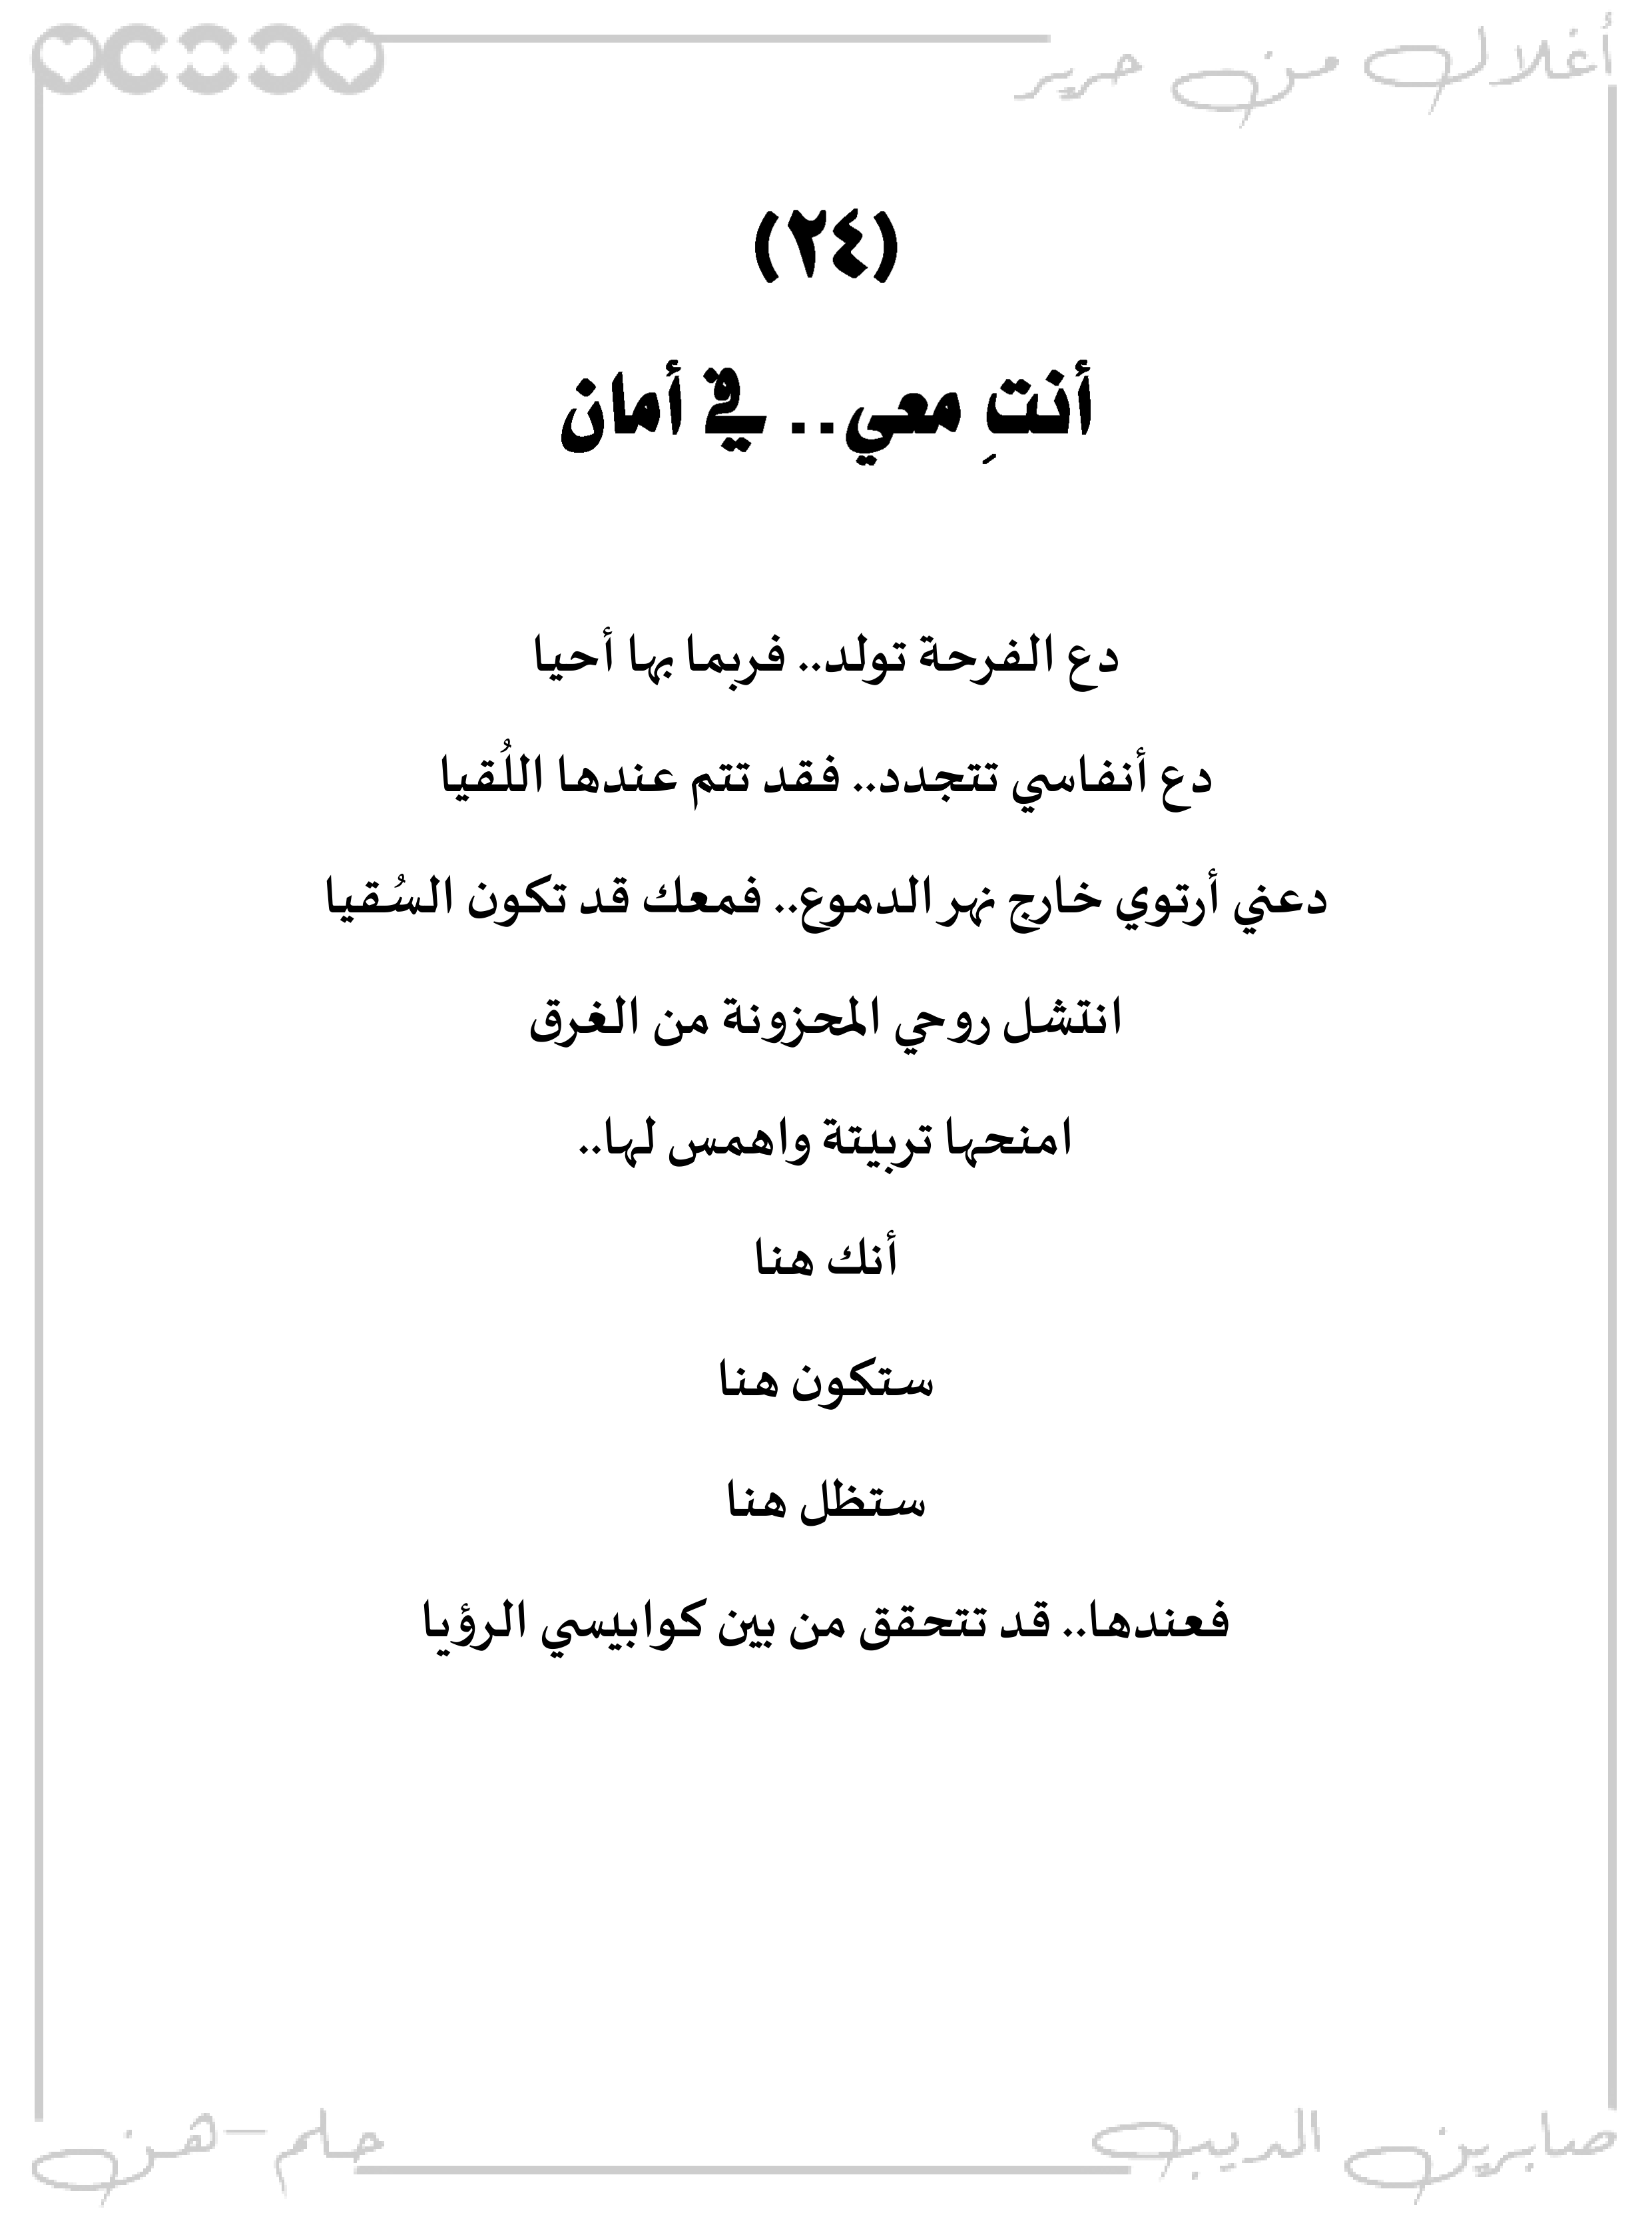 أغلال من حرير
(٢٤)
أنتِ معي.. في أمان
دع الفرحة تولد.. فربما بها أحيا
دع أنفاسي تتجدد.. فقد تتم عندها اللُقيا
دعني أرتوي خارج نهر الدموع.. فمعك قد تكون السُقيا
انتشل روحي المحزونة من الغرق
امنحها تربيتة واهمس لها..
أنك هنا
ستكون هنا
ستظل هنا
فعندها.. قد تتحقق من بين كوابيسي الرؤيا
صابرين الديب
حلم-هن